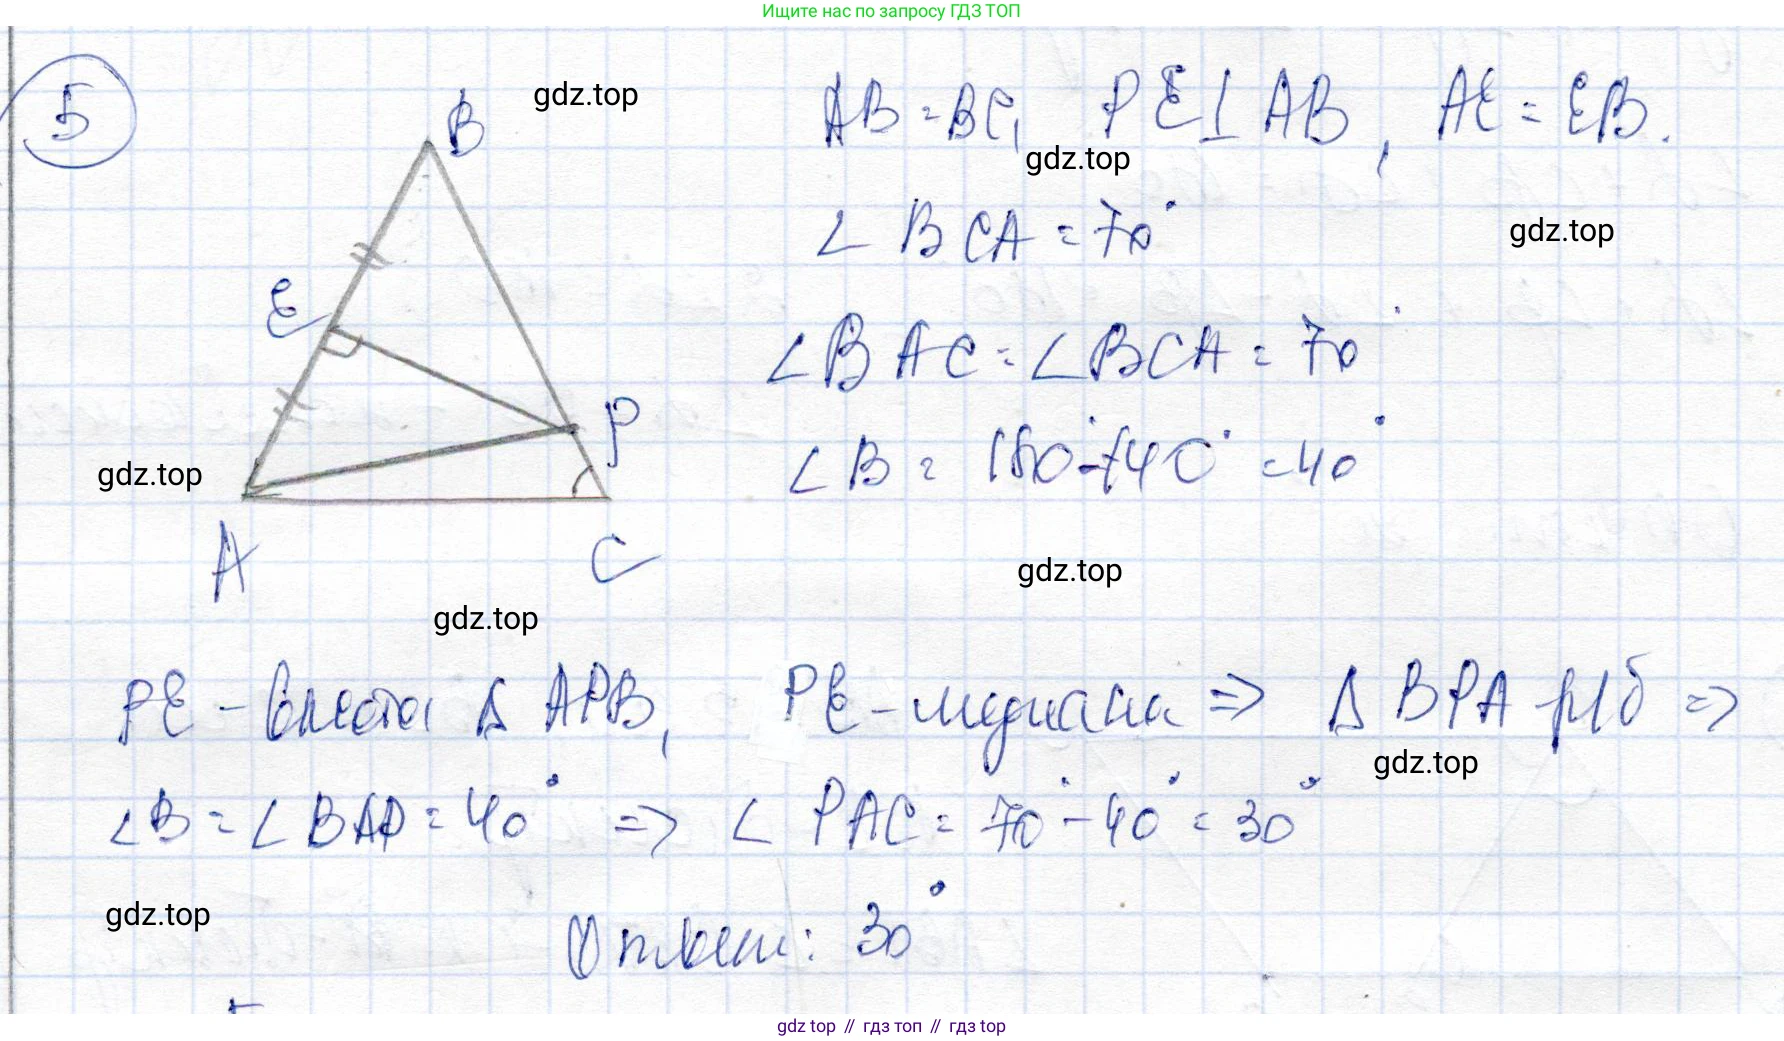 Ищите нас по запросу ГДЗ ТОП
5
B
gdz.top
AB = BC, PE ⊥ AB, AE = EB.
gdz.top
∠ BCA = 70°
gdz.top
E
∠BAC = ∠BCA = 70°
P
∠B = 180° - 140° = 40°
gdz.top
A
C
gdz.top
gdz.top
PE - высота Δ APB, PE - медиана => Δ BPA - р/б =>
gdz.top
∠B = ∠BAP = 40° => ∠ PAC = 70° - 40° = 30°
gdz.top
Ответ: 30°
gdz top // гдз топ // гдз top